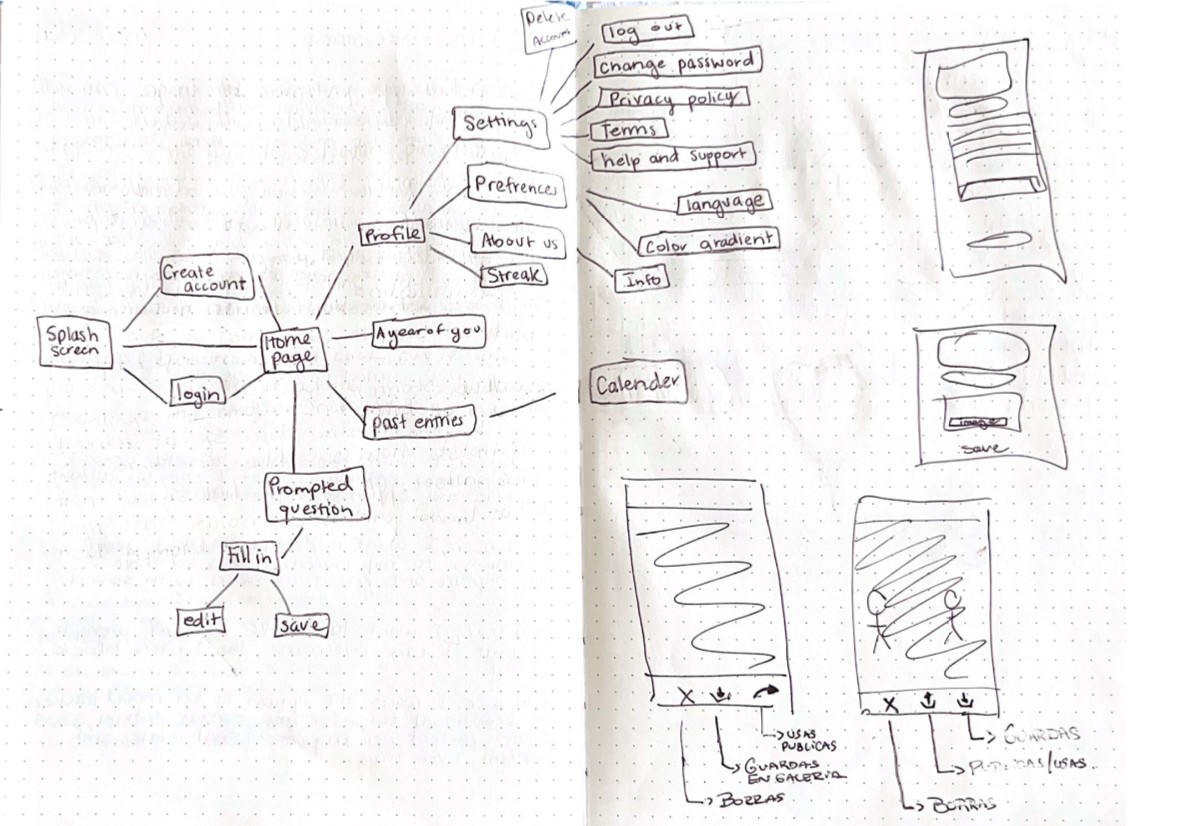 Delete
Account
log out
change password
Privacy policy
Terms
help and support
Settings
Prefrences
language
Profile
About us
Color gradient
Streak
Info
Create
account
Splash
screen
Home
page
A year of you
login
Calender
past entries
Prompted
question
Fill in
edit
save
image
save
X
USAS
PUBLICAS
GUARDAS
EN GALERIA
BORRAS
X
GUARDAS
PUBLICAS/USAS
BORRAS